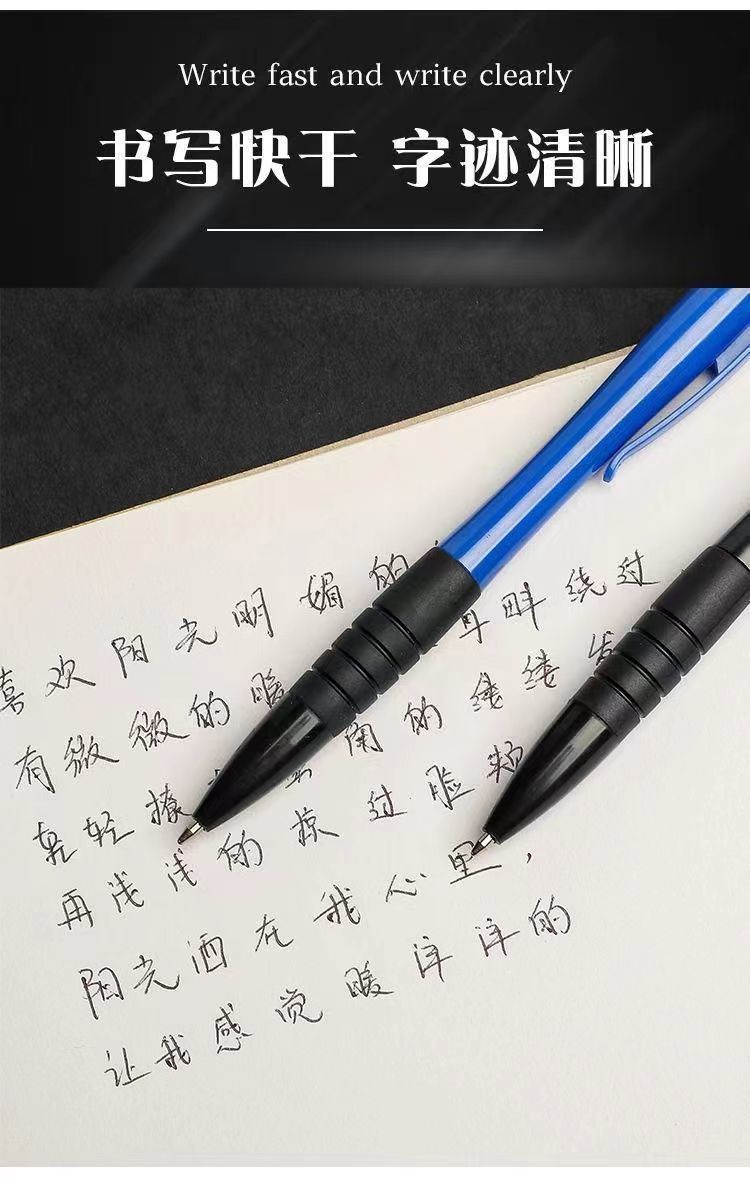 Write fast and write clearly
书写快干 字迹清晰
喜欢阳光明媚的 耳畔绕过
有微微的暖 的缕缕发
轻轻撩 过脸颊
再浅浅的掠
阳光洒在我心里,
让我感觉暖洋洋的